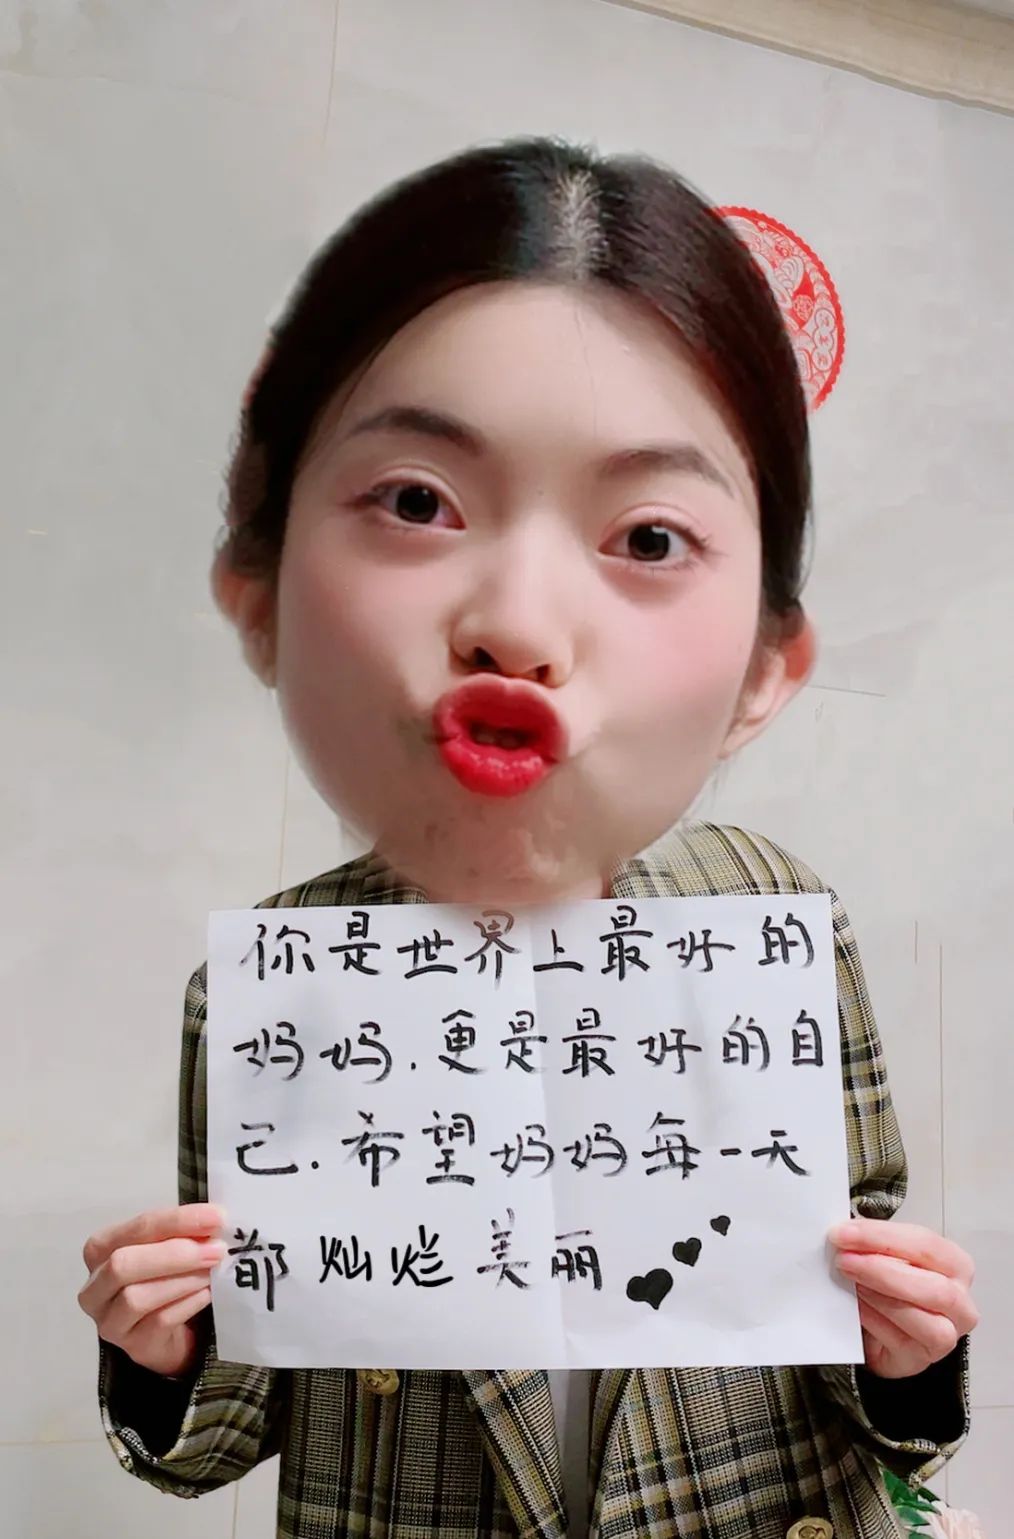 你是世界上最好的
妈妈.更是最好的自
己.希望妈妈每一天
都灿烂美丽